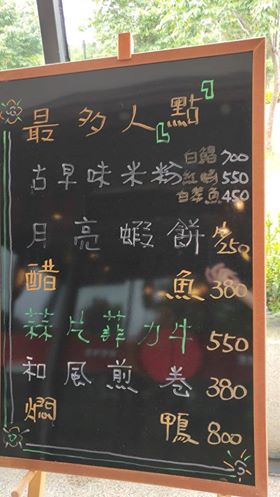 最多人點
白鯧 700
古早味米粉 550
450
月亮蝦餅 250
醋魚 380
蒜片菲力牛 550
和風煎卷 380
燜鴨 800